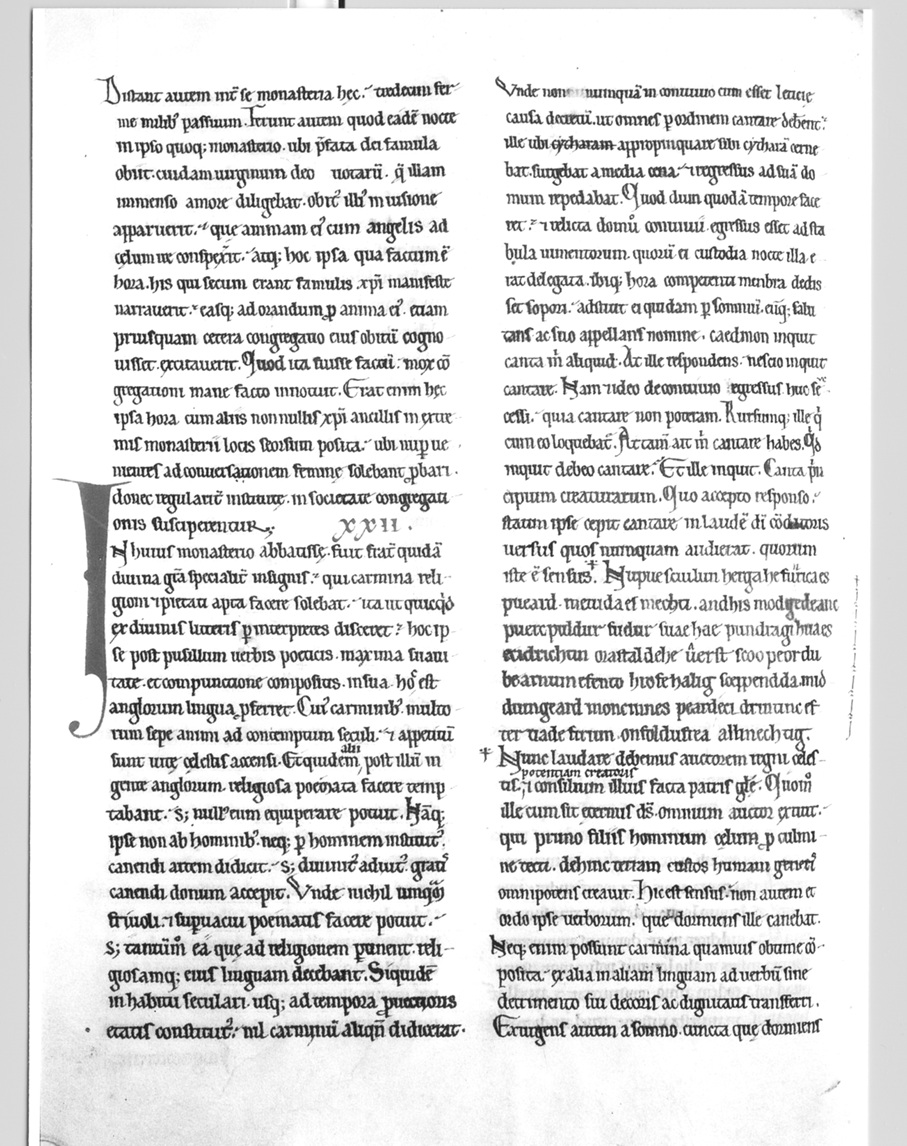 Distant autem int̄ se monasteria hęc. tredecim fer-
me milib; passuum. Ferunt autem quod eadē nocte
in ipso quoq; monasterio. ubi p̄fata dei famula
obiit. cuidam uirginum deo uotarū. q̄ illam
immenso amore diligebat. obit᷒ illi᷒ in uisione
apparuerit. que animam ei᷒ cum angelis ad
cęlum ire conspexit. atq; hoc ipsa qua factum ē
hora. his qui secum erant famulis xp̄i manifeste
narrauerit. easq; ad orandum ꝓ anima ei᷒. etiam
priusquam cetera congregatio eius obitū cogno
uisset. excitauerit. Quod ita fuisse factū. mox cō
gregationi mane facto innotuit. Erat enim hec
ipsa hora. cum aliis non nullis xp̄i ancillis in extre
mis monasterii locis seorsum posita. ubi nuꝑ ue
nientes ad conuersationem femine solebant ꝓbari.
donec regularit᷒ institute. in societate congregati
onis susciperentur. XXII.
IN huius monasterio abbatissę. fuit frat᷒ quidā
diuina gr̄a specialit᷒ insignis. qui carmina reli-
gioni ⁊ pietati apta facere solebat. ita ut quicq͛d
ex diuinis litteris ꝑ interpretes disceret. hoc ip-
se post pusillum uerbis poeticis. maxima suaui
tate. et compunctione compositis. in sua. hoc̄ est
anglorum lingua ꝓferret. Cui᷒ carminib; multo
rum sepe animi ad contemptum seculi. ⁊ appetitū
sunt uitę cęlestis accensi. Et quidem alii post illū in
gente anglorum. religiosa poemata facere temp
tabant. s; null᷒ eum equiperare potuit. Nāq;
ipse non ab hominib; neq; ꝑ hominem institut᷒.
canendi artem didicit. s; diuinit᷒ adiut᷒. gratis
canendi donum accepit. Vnde nichil umquā
friuoli. ⁊ supuacui poematis facere potuit.
s; tantūm̊ ea que ad religionem ꝑtinent. reli-
giosamq; eius linguam decebant. Siquidē
in habitu seculari. usq; ad tempora ꝓuectioris
etatis constitut᷒. nil carminū aliqn̄ didicerat.
Vnde non numquā in conuiuio cum esset leticię
causa decretū. ut omnes ꝑ ordinem cantare debent.
ille ubi cytharam appropinquare sibi cytharā cerne
bat. surgebat a media cena. ⁊ regressus ad suā do
mum repedabat. Quod dum quodā tempore face
ret. ⁊ relicta domū conuiuii egressus esset ad sta
bula iumentorum. quorū ei custodia nocte illa e
rat delegata. ibiq; hora competenti menbra dedis
set sopori. adstitit ei quidam ꝑ somniū. eūq; salu
tans ac suo appellans nomine. caedmon inquit
canta m̄ aliquid. At ille respondens. nescio inquit
cantare. Nam ⁊ ideo de conuiuio egressus huc se
cessi. quia cantare non poteram. Rursumq; ille q͛
cum eo loquebat᷒. Attam̄ ait m̄ cantare habes. Qd͛
inquit debeo cantare. Et ille inquit. Canta prin
cipium creaturarum. Quo accepto responso.
statim ipse cepit cantare in laudē dī cōditoris
uersus quos numquam audierat. quorum
iste ē sensus. Nu pue sculun herga hefunrica es
pueard. metuda es mechti. and his modgedeanc
puerc puldur fudur suae hae pundra gihuaes
ecidrichtin orastaldehe uerst scoopeordu
bearnum efento hrofe halig sceppendda. mid
dumgeard moncinnes peardeci drintinc ef
ter tiade firum onfoldu frea allmechtig.
Nunc laudare debemus auctorem regni cęles
tis. potentiam creatoris ⁊ consilium illius facta patris glę. Quom̊
ille cum sit eternus ds̄. omnium auctor extitit.
qui primo filiis hominum cęlum ꝓ culmi
ne tecti. dehinc terram custos humani generis
omnipotens creauit. Hic est sensus. non autem et
ordo ipse uerborum. que dormiens ille canebat.
Neq; enim possunt carmina. quamuis obtime cō-
posita. ex alia in aliam linguam ad uerbū sine
detrimento sui decoris ac dignitatis transferri.
Exurgens autem a somno. cuncta que dormiens